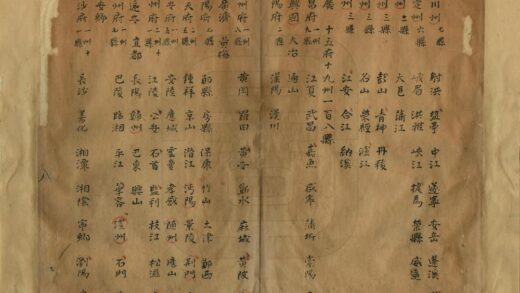 川州 七縣 射洪 鹽亭 中江 遂寧 安岳 蓬溪
定府 六縣 峨眉 洪雅 峽江 犍為 榮縣 威遠
州 二縣 大邑 蒲江
州 三縣 彭山 青神 丹稜
州 三縣 名山 榮經 蘆山
州 三縣 江安 合江 納溪
廣 十五府十九州一百八縣
昌府 江夏 武昌 嘉魚 咸寧 蒲圻 崇陽
興國 大冶 通山
陽府 二縣 漢陽 漢川
州府 八縣 黃岡 羅田 蘄水 麻城 黃陂
廣濟 黃梅
陽府 七縣 鄖縣 房縣 保康 竹山 上津 鄖西
天府 鍾祥 京山 潛江 沔陽 景陵 荊門
安府 安陵 應城 雲夢 孝感 隨州 應山
州府 江陵 公安 石首 監利 枝江 松滋
遠安 宜都 長陽 歸州 巴東 興山
州府 巴陵 臨湘 平江 華容 澧州 石門
安鄉
沙府 長沙 善化 湘潭 湘陰 寧鄉 瀏陽